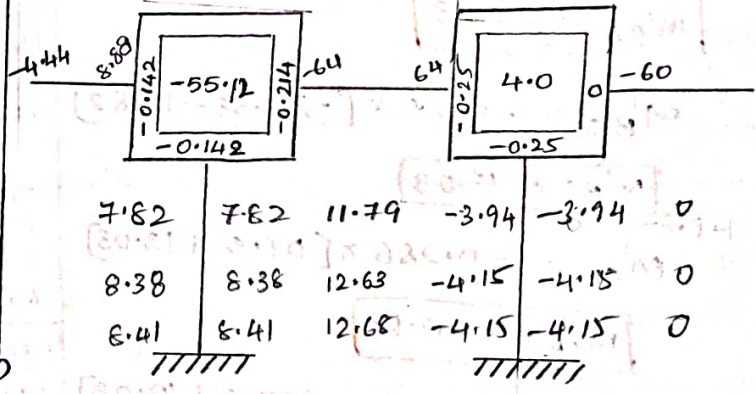 -4.44 8.88 -0.142 -55.12 -0.214 -64 64 -0.25 4.0 0 -60
-0.142 -0.25
7.82 7.82 11.79 -3.94 -3.94 0
8.38 8.38 12.63 -4.15 -4.15 0
8.41 8.41 12.68 -4.15 -4.15 0